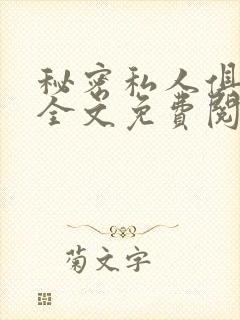 秘密私人俱
全文免費閱
菊文字